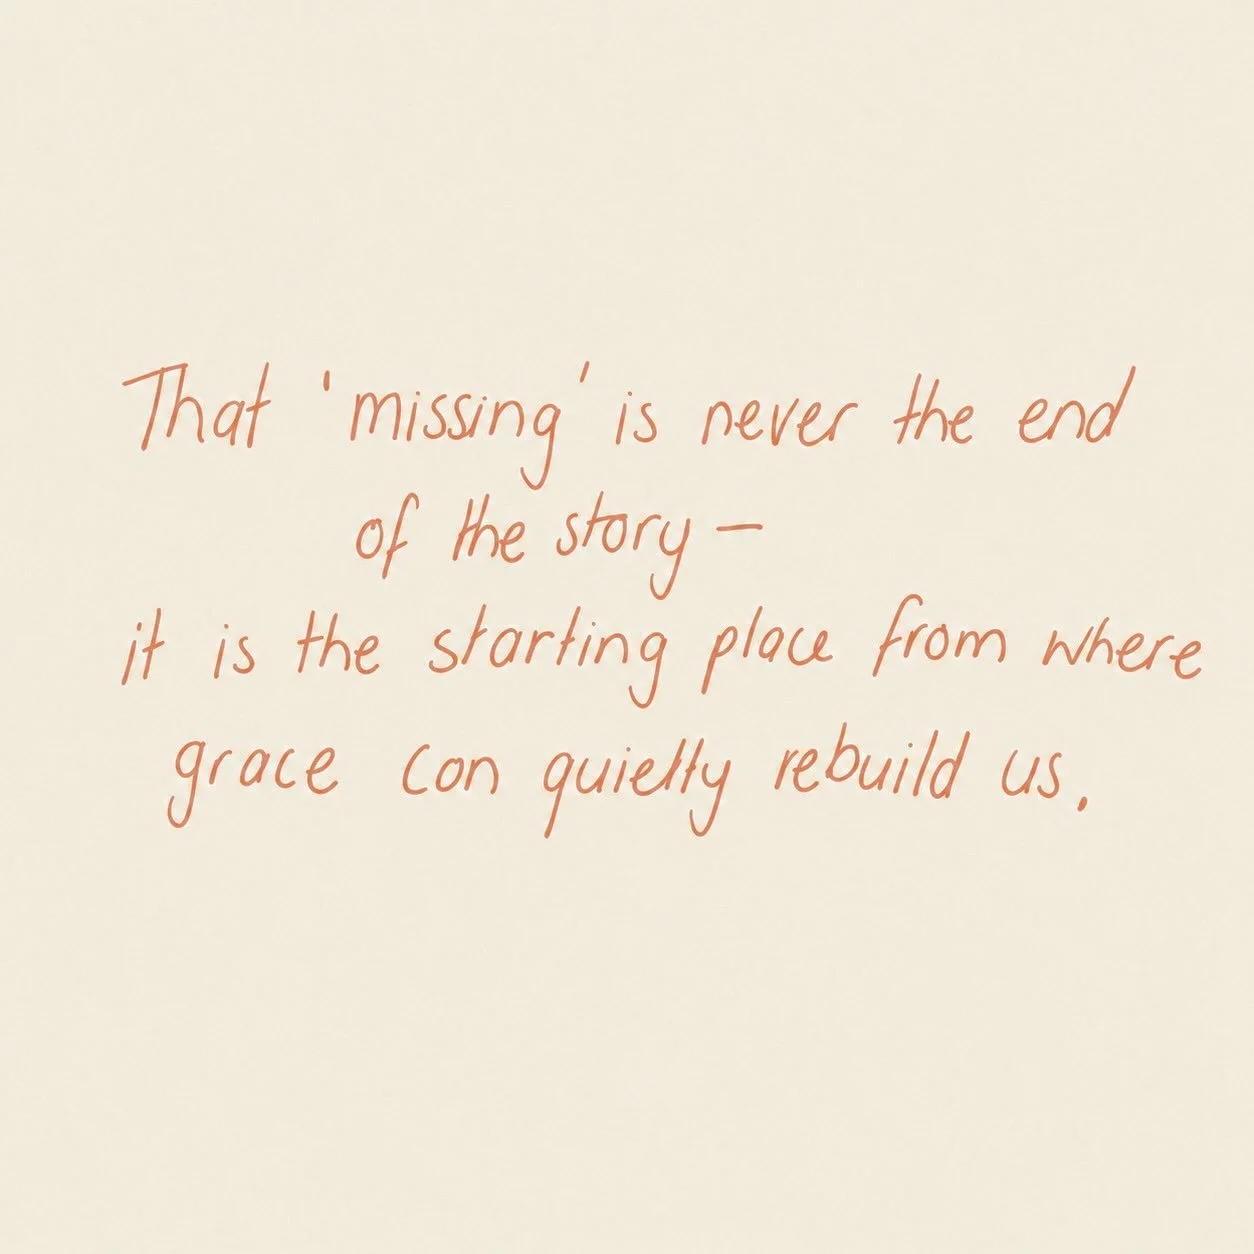 That 'missing' is never the end
of the story –
it is the starting place from where
grace can quietly rebuild us.